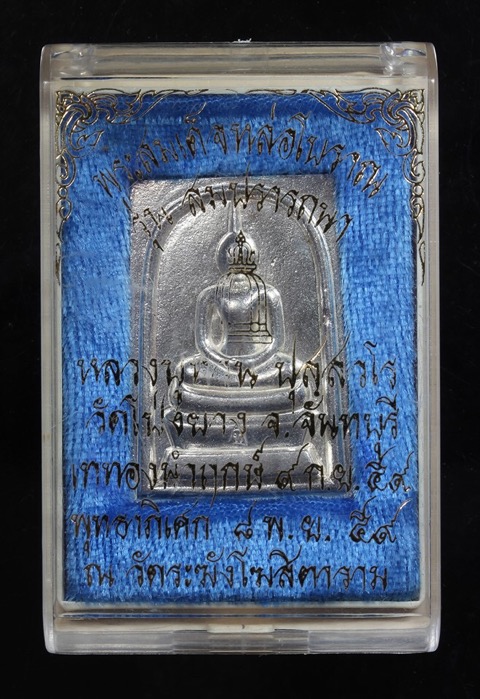 พระสมเด็จหล่อโบราณ
รุ่น สมปรารถนา
หลวงปู่ ปุสฺสวโร
วัดโป่งยาง จ.จันทบุรี
เททองนำฤกษ์ ๙ ก.ย. ๕๙
พุทธาภิเศก ๘ พ.ย. ๕๙
ณ วัดระฆังโฆสิตาราม